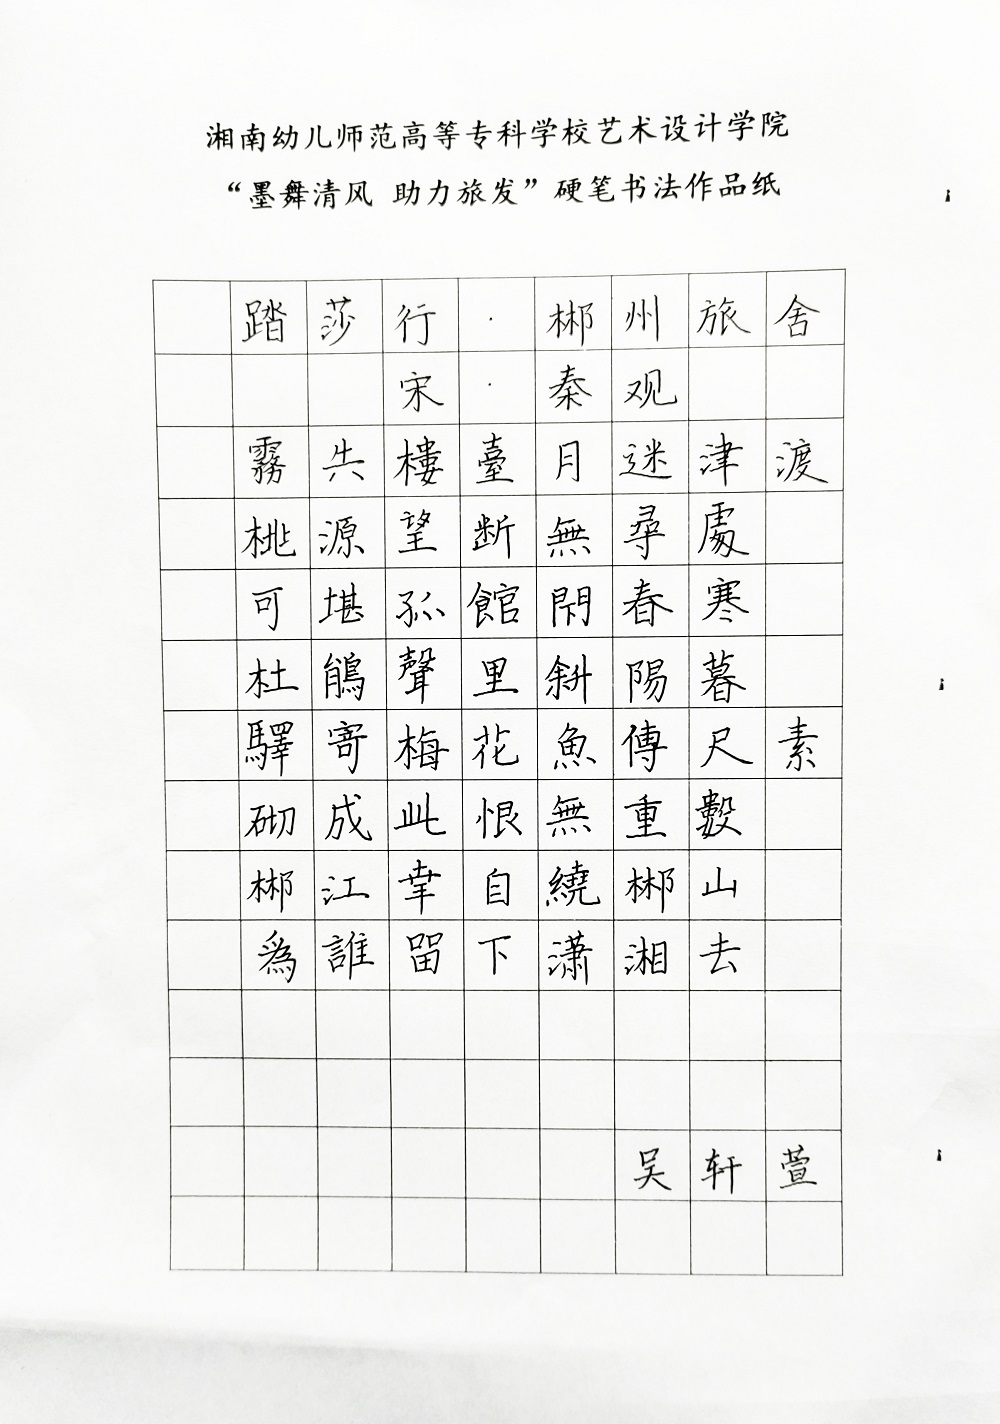 湘南幼儿师范高等专科学校艺术设计学院
“墨舞清风 助力旅发”硬笔书法作品纸
踏莎行·郴州旅舍
宋·秦观
霧失楼臺月迷津渡
桃源望断無尋處
可堪孤館閉春寒
杜鵑聲里斜陽暮
驛寄梅花魚傳尺素
砌成此恨無重數
郴江幸自繞郴山
為誰留下潇湘去
吴轩萱